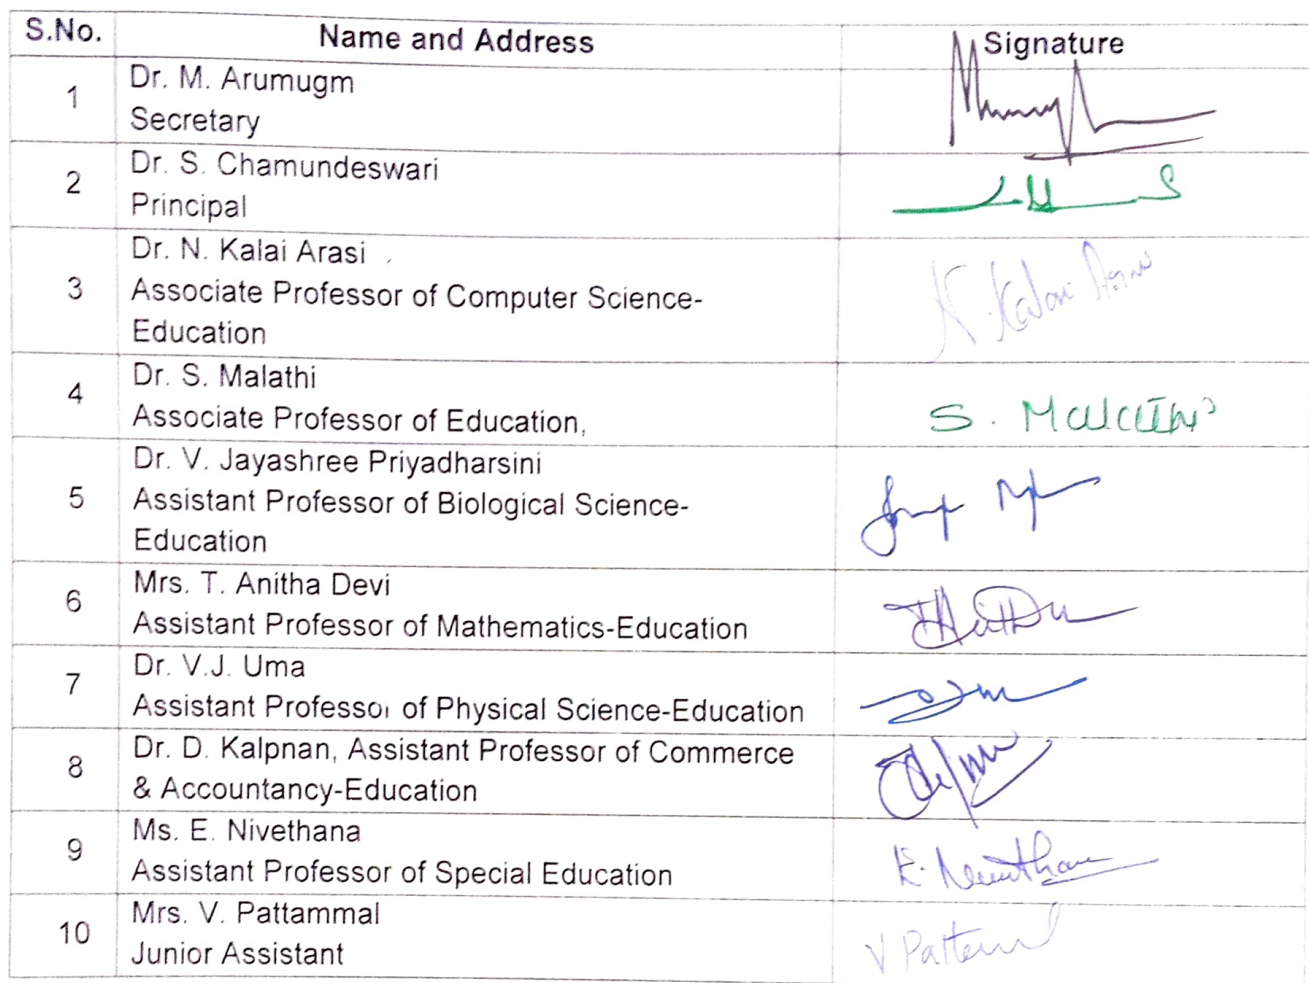 S.No. Name and Address Signature
1 Dr. M. Arumugm
Secretary
2 Dr. S. Chamundeswari
Principal
3 Dr. N. Kalai Arasi
Associate Professor of Computer Science-
Education
N. Kalai Arasi
4 Dr. S. Malathi
Associate Professor of Education,
S. Malathi
5 Dr. V. Jayashree Priyadharsini
Assistant Professor of Biological Science-
Education
6 Mrs. T. Anitha Devi
Assistant Professor of Mathematics-Education
7 Dr. V.J. Uma
Assistant Professor of Physical Science-Education
8 Dr. D. Kalpnan, Assistant Professor of Commerce
& Accountancy-Education
9 Ms. E. Nivethana
Assistant Professor of Special Education
10 Mrs. V. Pattammal
Junior Assistant